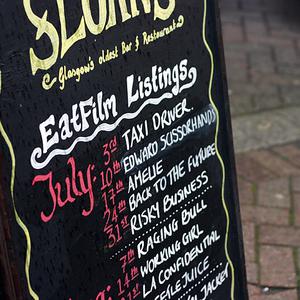 SLOANS
Glasgow's oldest Bar & Restaurant
EatFilm Listings
July: 3rd TAXI DRIVER.
10th EDWARD SCISSORHANDS
17th AMELIE
24th BACK TO THE FUTURE
31st RISKY BUSINESS
7th RAGING BULL
14th WORKING GIRL
21st LA CONFIDENTIAL
BEETLEJUICE
JACKET